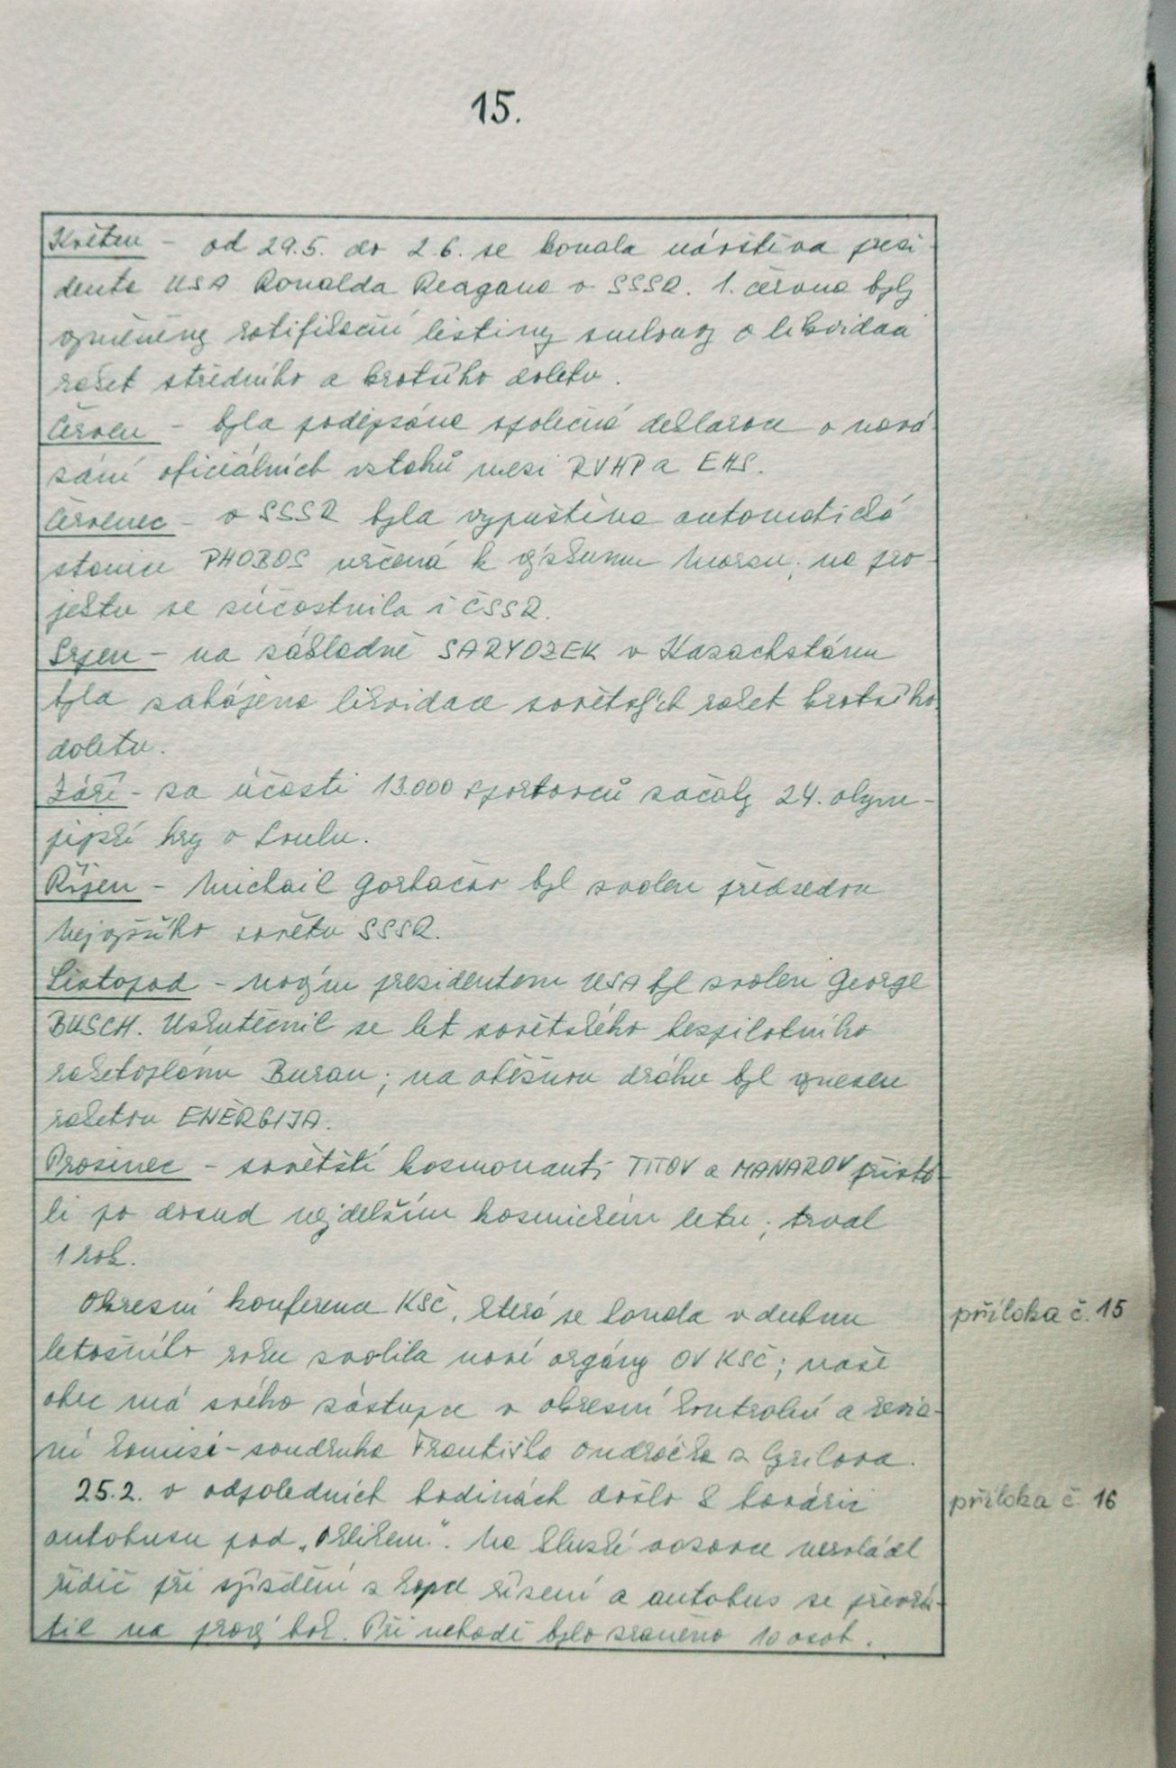 15.
Květen - od 29.5. do 2.6. se konala návštěva presi-
denta USA Ronalda Reagana v SSSR. 1. června byly
vyměněny ratifikační listiny smlouvy o likvidaci
raket středního a kratšího doletu.
Červen - byla podepsána společná deklarace o navá
zání oficiálních vztahů mezi RVHP a EHS.
Červenec - v SSSR byla vypuštěna automatická
stanice PHOBOS určená k výzkumu Marsu; na pro-
jektu se zúčastnila i ČSSR.
Srpen - na základně SARYOZEK v Kazachstánu
byla zahájena likvidace sovětských raket kratšího
doletu.
Září - za účasti 13.000 sportovců začaly 24. olym-
pijské hry v Soulu.
Říjen - Michail Gorbačov byl zvolen předsedou
Nejvyššího sovětu SSSR.
Listopad - novým presidentem USA byl zvolen George
BUSCH. Uskutečnil se let sovětského bezpilotního
raketoplánu Buran; na oběžnou dráhu byl vynesen
raketou ENĚRGIJA.
Prosinec - sovětští kosmonauti TITOV a MANAROV přistá-
li po dosud nejdelším kosmickém letu; trval
1 rok.
Okresní konference KSČ, která se konala v dubnu
letošního roku zvolila nové orgány OV KSČ; naše
obec má svého zástupce v okresní kontrolní a reviz-
ní komisi - soudruha Františka Ondráčka z
25.2. v odpoledních hodinách došlo k havárii
autobusu pod „Oklikem". Na kluzké vozovce nezvládl
řidič při sjíždění z kopce řízení a autobus se převrá-
til na pravý bok. Při nehodě bylo zraněno 10 osob.
příloha č. 15
příloha č. 16